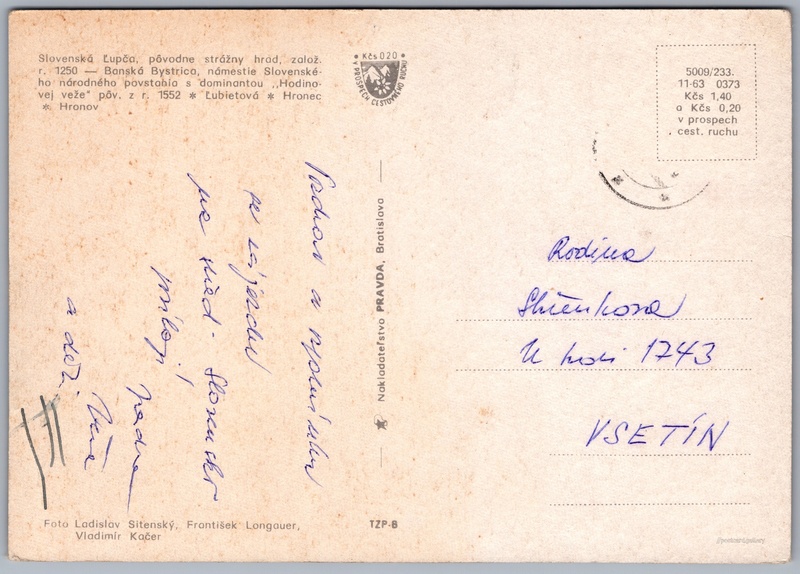 Slovenská Ľupča, pôvodne strážny hrad, založ.
r. 1250 — Banská Bystrica, námestie Slovenské-
ho národného povstania s dominantou „Hodino-
vej veže" pôv. z r. 1552 * Ľubietová * Hronec
* Hronov
• Kčs 020 •
V PROSPECH CESTOVNÉHO RUCHU
5009/233.
11-63 0373
Kčs 1,40
a Kčs 0,20
v prospech
cest. ruchu
Pozdrav a
ze zájezdu
Slovensko
Nadra
Věra
a děti
Nakladateľstvo PRAVDA, Bratislava
Rodina
1743
VSETÍN
Foto Ladislav Sitenský, František Longauer,
Vladimír Kačer
TZP-B